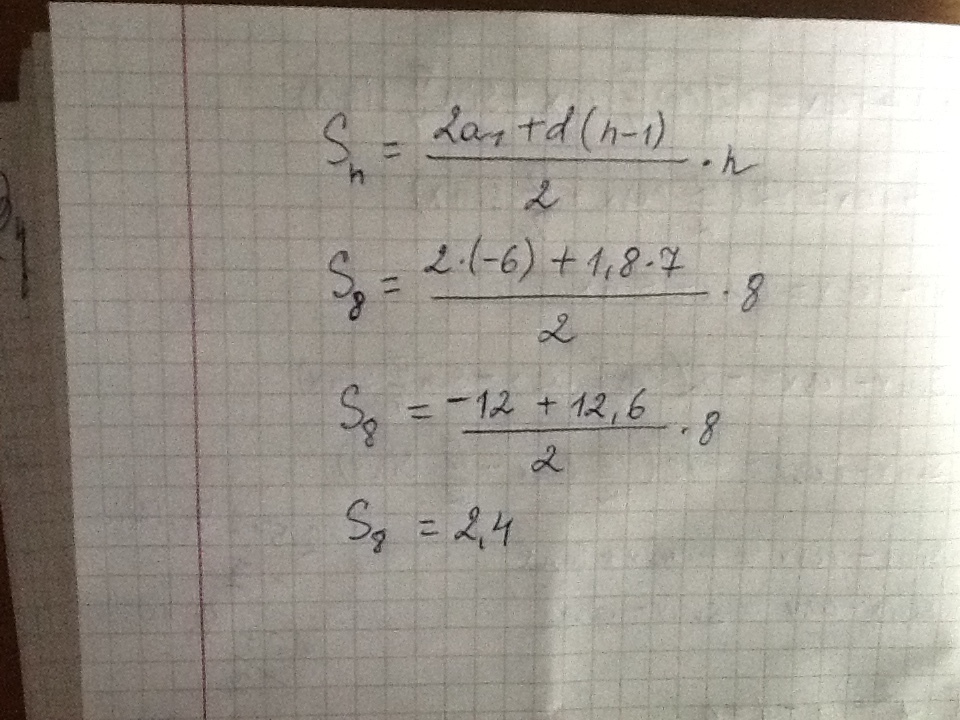 Sₙ = (2a₁ + d(n-1))/2 · n
S₈ = (2·(-6) + 1,8·7)/2 · 8
S₈ = (-12 + 12,6)/2 · 8
S₈ = 2,4